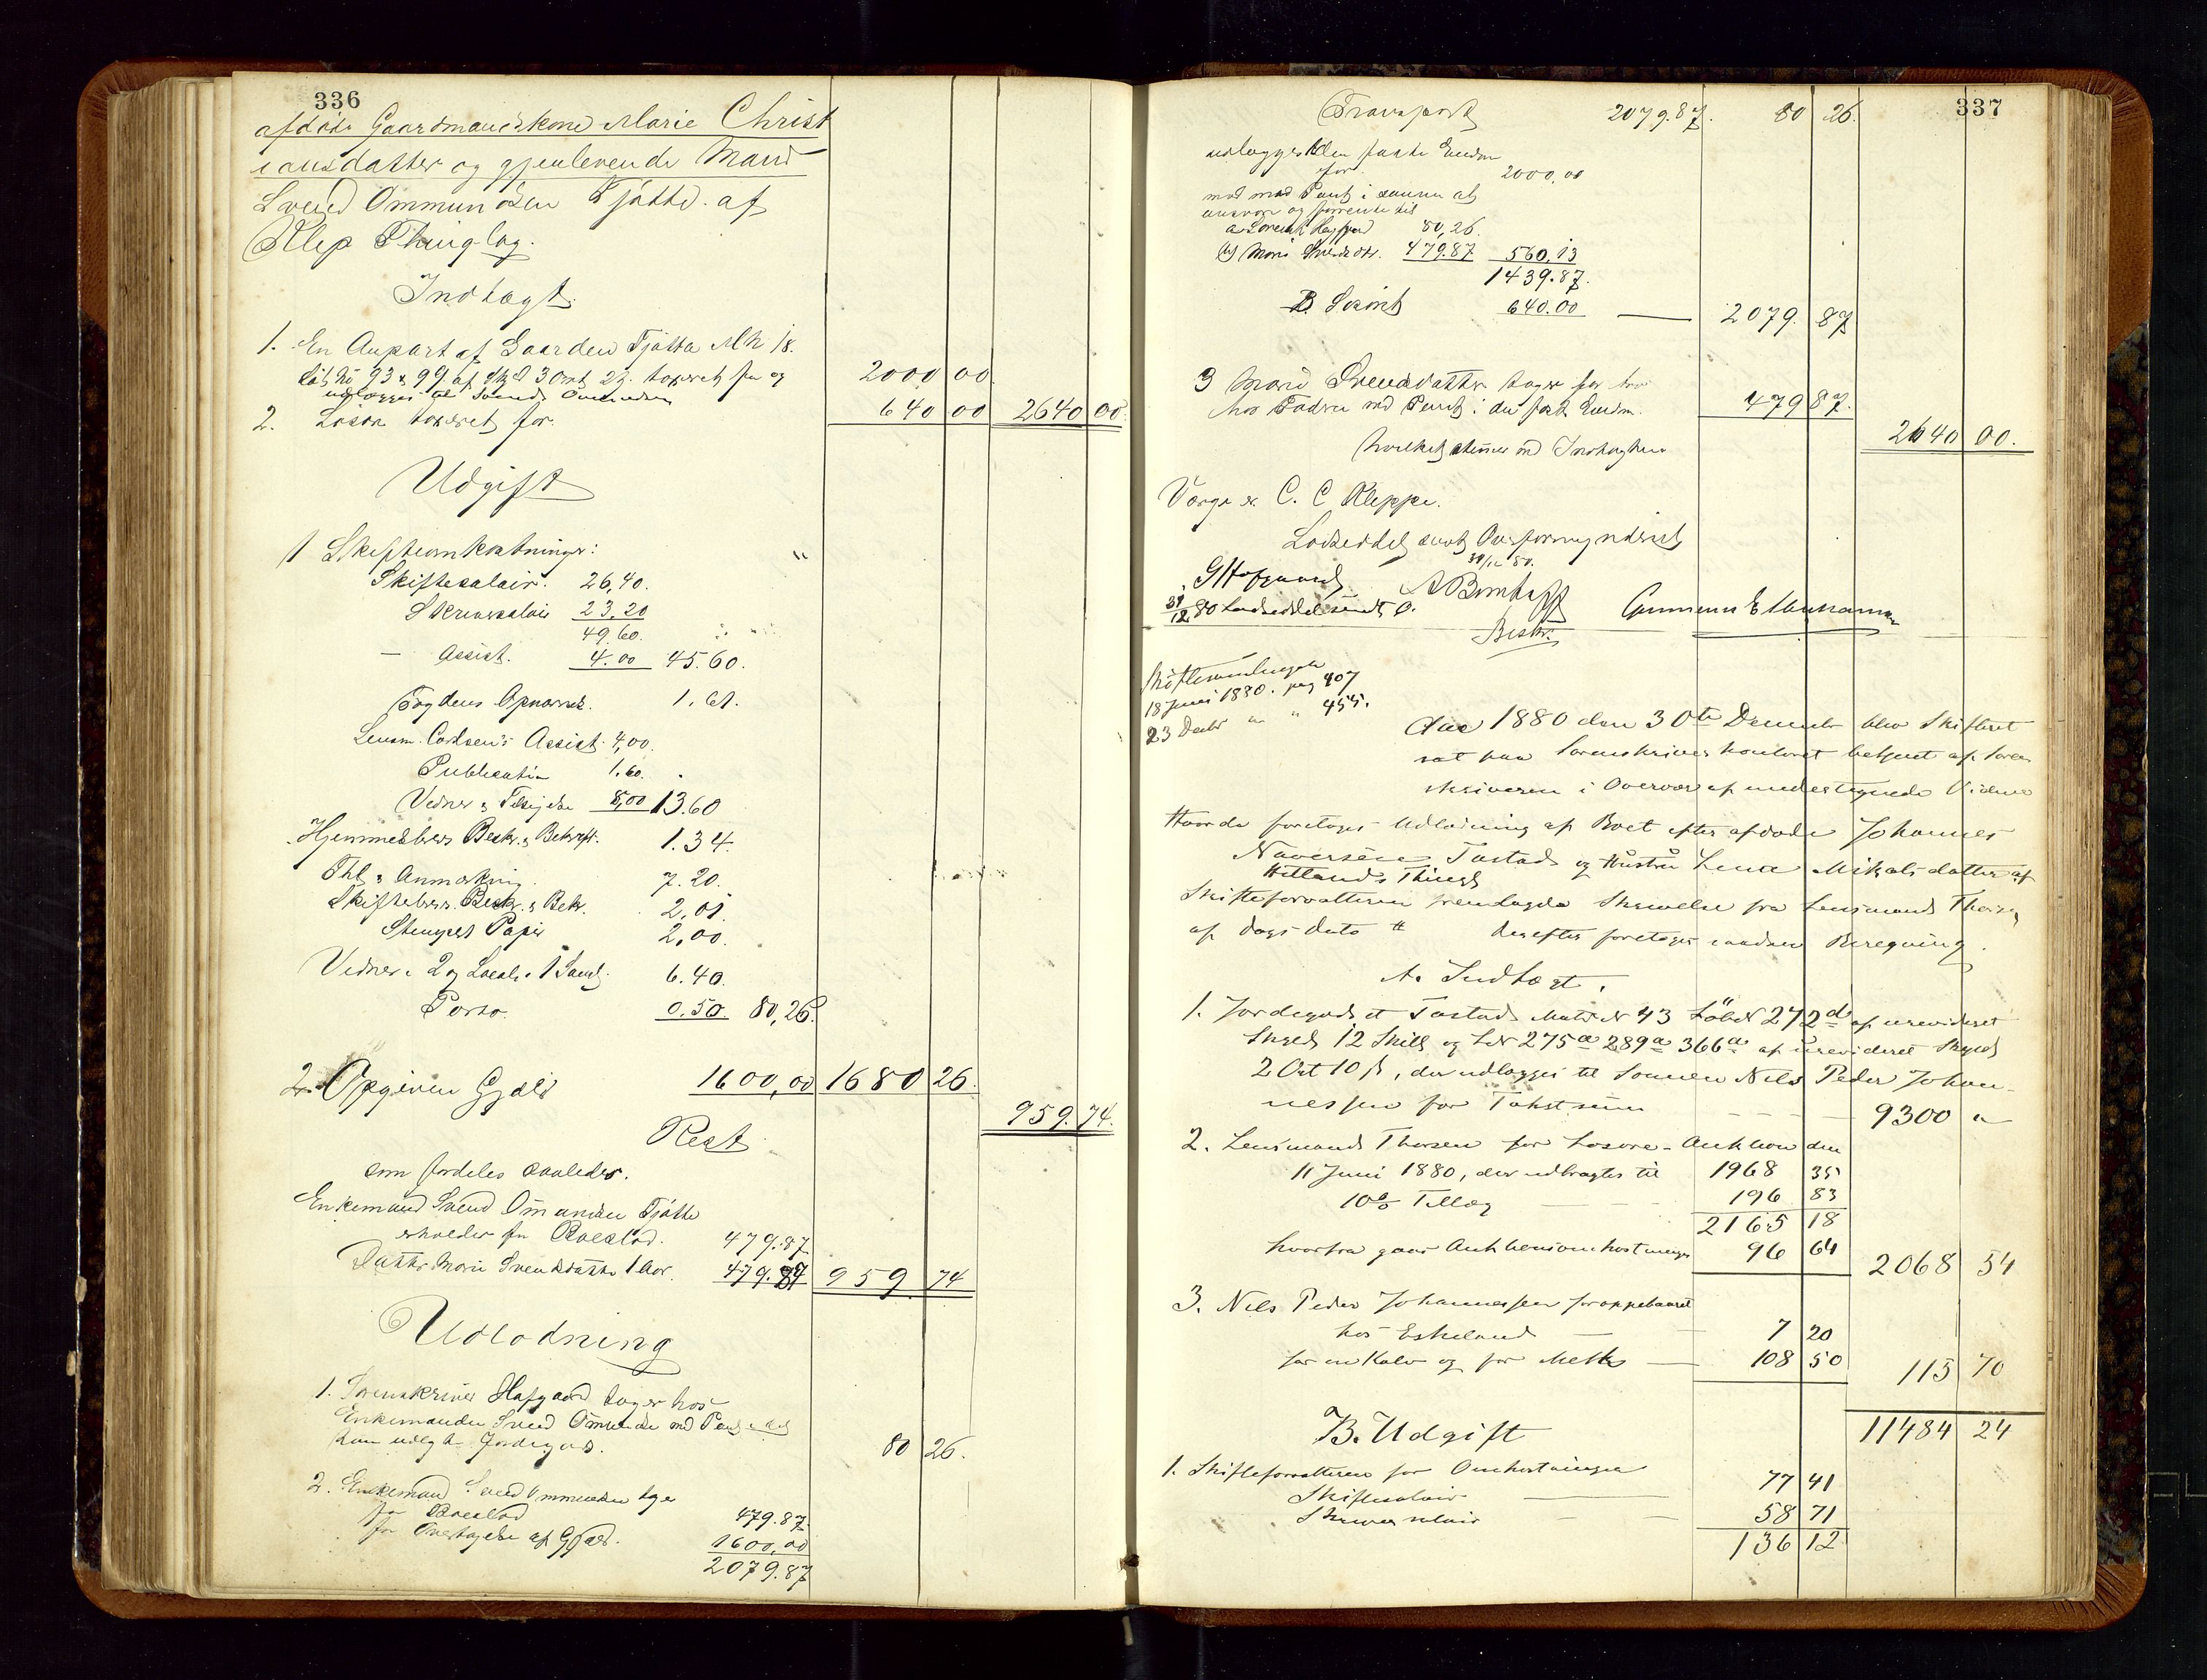 336
afdøde Gaardmandskone Marie Christ
iansdatter og gjenlevende Mand
Svend Ommundsen Tjøtta af
Klep Thinglag.
Indtægt.
1. En Anpart af Gaarden Tjøtta M N 18.
Løb No 93 & 99 af Skyld 3 Ort 23. taxeret for og
udlægges til Svend Ommundsen 2000 00
2. Løsøre taxeret for. 640 00 2640 00
Udgift
1 Skifteomkostninger: "
Skiftesalair. 26,40.
Skriversalair 23.20
49.60.
— Assist. 4.00 45.60.
Fogdens Opnævnelse. 1.61.
Lensm. Carlsen's Assist. 4,00.
Publication 1.60.
Vidner & Tilsigelse 8,00 13.60
Hjemmelsbrev Beskr. & Bekræft. 1.34.
Thl. & Anmærkning. 7.20.
Skiftebrev. Beskr. & Bekr. 2,01.
Stemplet Papir 2,00.
Vidner i 2 og Locale i 1 Saml. 6.40.
Porto. 0.50 80,26.
2. Opgiven Gjæld 1600,00 1680 26.
959.74.
Rest
som fordeles saaledes.
Enkemand Svend Ommundsen Tjøtta
erholder for Boeslod. 479.87
Datter Marie Svendsdatter 1 Aar. 479.87 959 74
Udlodning
1. Sorenskriver Hofgaard tager hos
Enkemanden Svend Ommundsen med Pant i det
ham udlagte Jordegods. 80 26.
2. Enkemand Svend Ommundsen tager
for Boeslod 479.87.
for Overtagelse af Gjæld. 1600,00
2079.87
337
Transport 2079.87. 80 26.
udlægges A den faste Eiendom
for. 2000,00
mod med Pant i samme at
ansvare og forrente til
a. Sorenskr. Hofgaard 80,26.
b) Marie Svendsdtr. 479.87 560,13
1439.87.
B. Løsøret 640.00 — 2079. 87
3 Marie Svendsdatter tager for
hos Faderen med Pant i den faste Eiendom. 479 87.
2640 00.
hvilket stemmer med Indtægten
Værge er C. C Kleppe.
Lodseddel sendt Overformynderiet
30/12 80.
G Hofgaard. A Bomhoff Gunnerius E Abrahamsen
31/12 80 Lodseddel sendt O.
Beskr.
Skiftesamlinger
18 Juni 1880. pag 407
23 Decbr " " 455.
Aar 1880 den 30te December blev Skifteret
sat paa Sorenskriverkontoret betjent af Soren
skriveren i Overvær af undertegnede Vidner
Hvorda foretoges Udlodning af Boet efter afdøde Johannes
Naversen Tastad og Hustru Lena Mikalsdatter af
Hetlands Thinglag
Skifteforvalteren fremlagde Skrivelse fra Lensmand Thorsen
af Dags Dato # Derefter foretoges saadan Beregning.
A. Indtægt.
1. Jordegods et Tastad Matr N 43 Løb N 272d af urevideret
Skyld 12 Skill og L N 275a 289a 366a af urevideret Skyld
2 Ort 10 ß, der udlægges til Sønnen Nils Peder Johan-
nessen for Takstsum — 9300 "
2. Lensmand Thorsen for Løsøre-Auktion den
11 Juni 1880, der udbragtes til 1968 35
10% Tillæg — 196 83
2165 18
hvorfra gaar Auktionsomkostninger 96 64 2068 54
3. Nils Peder Johannessen foroppebaaret
hos Eskeland — 7 20
for en Kalv og for Melk — 108 50 115 70
11484 24
B. Udgift
1. Skifteforvalteren for Omkostninger
Skiftesalair — 77 41
Skriversalair — 58 71
136 12